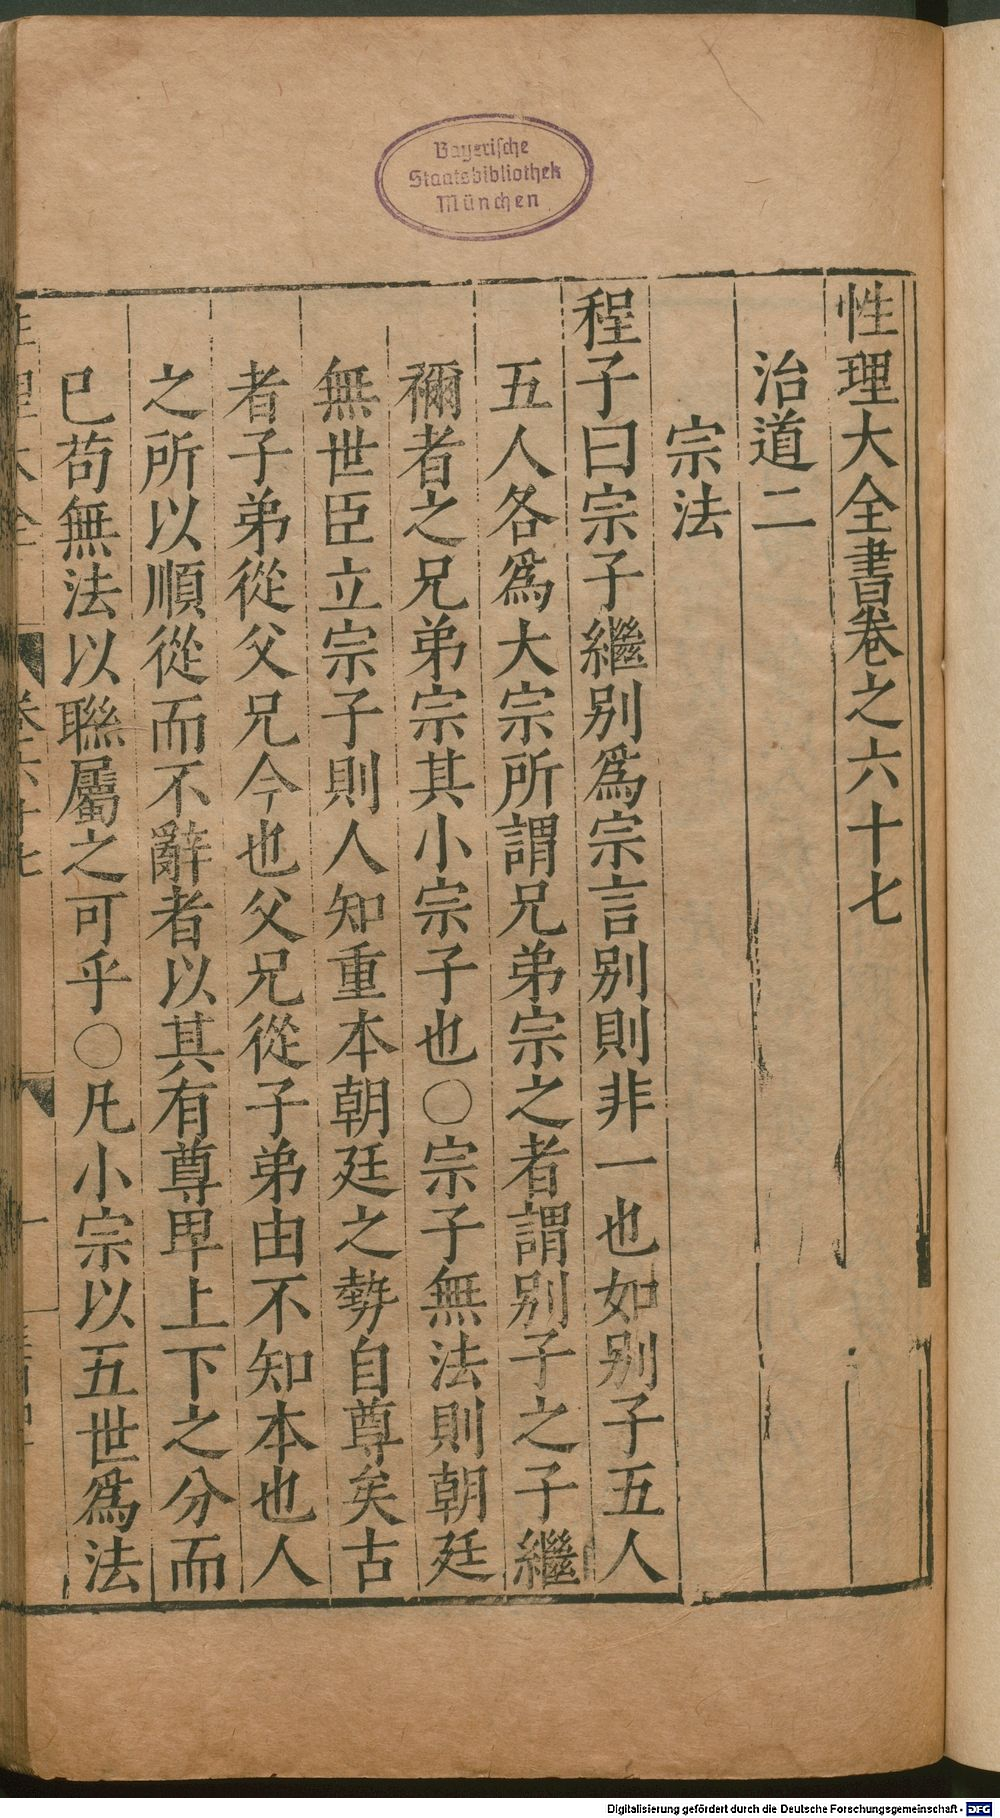 Bayerische
Staatsbibliothek
München
性理大全書卷之六十七
治道二
宗法
程子曰宗子繼别爲宗言别則非一也如别子五人
五人各爲大宗所謂兄弟宗之者謂别子之子繼
禰者之兄弟宗其小宗子也○宗子無法則朝廷
無世臣立宗子則人知重本朝廷之勢自尊矣古
者子弟從父兄今也父兄從子弟由不知本也人
之所以順從而不辭者以其有尊卑上下之分而
已苟無法以聯屬之可乎○凡小宗以五世爲法
性理大全
卷六十七
一
Digitalisierung gefördert durch die Deutsche Forschungsgemeinschaft - DFG